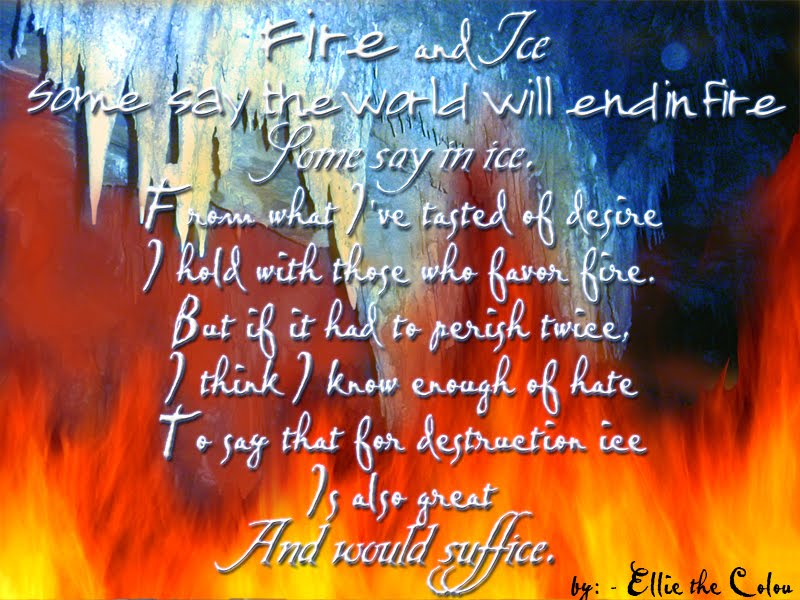 Fire and Ice
Some say the world will end in fire
Some say in ice.
From what I've tasted of desire
I hold with those who favor fire.
But if it had to perish twice,
I think I know enough of hate
To say that for destruction ice
Is also great
And would suffice.
by: - Ellie the Colou